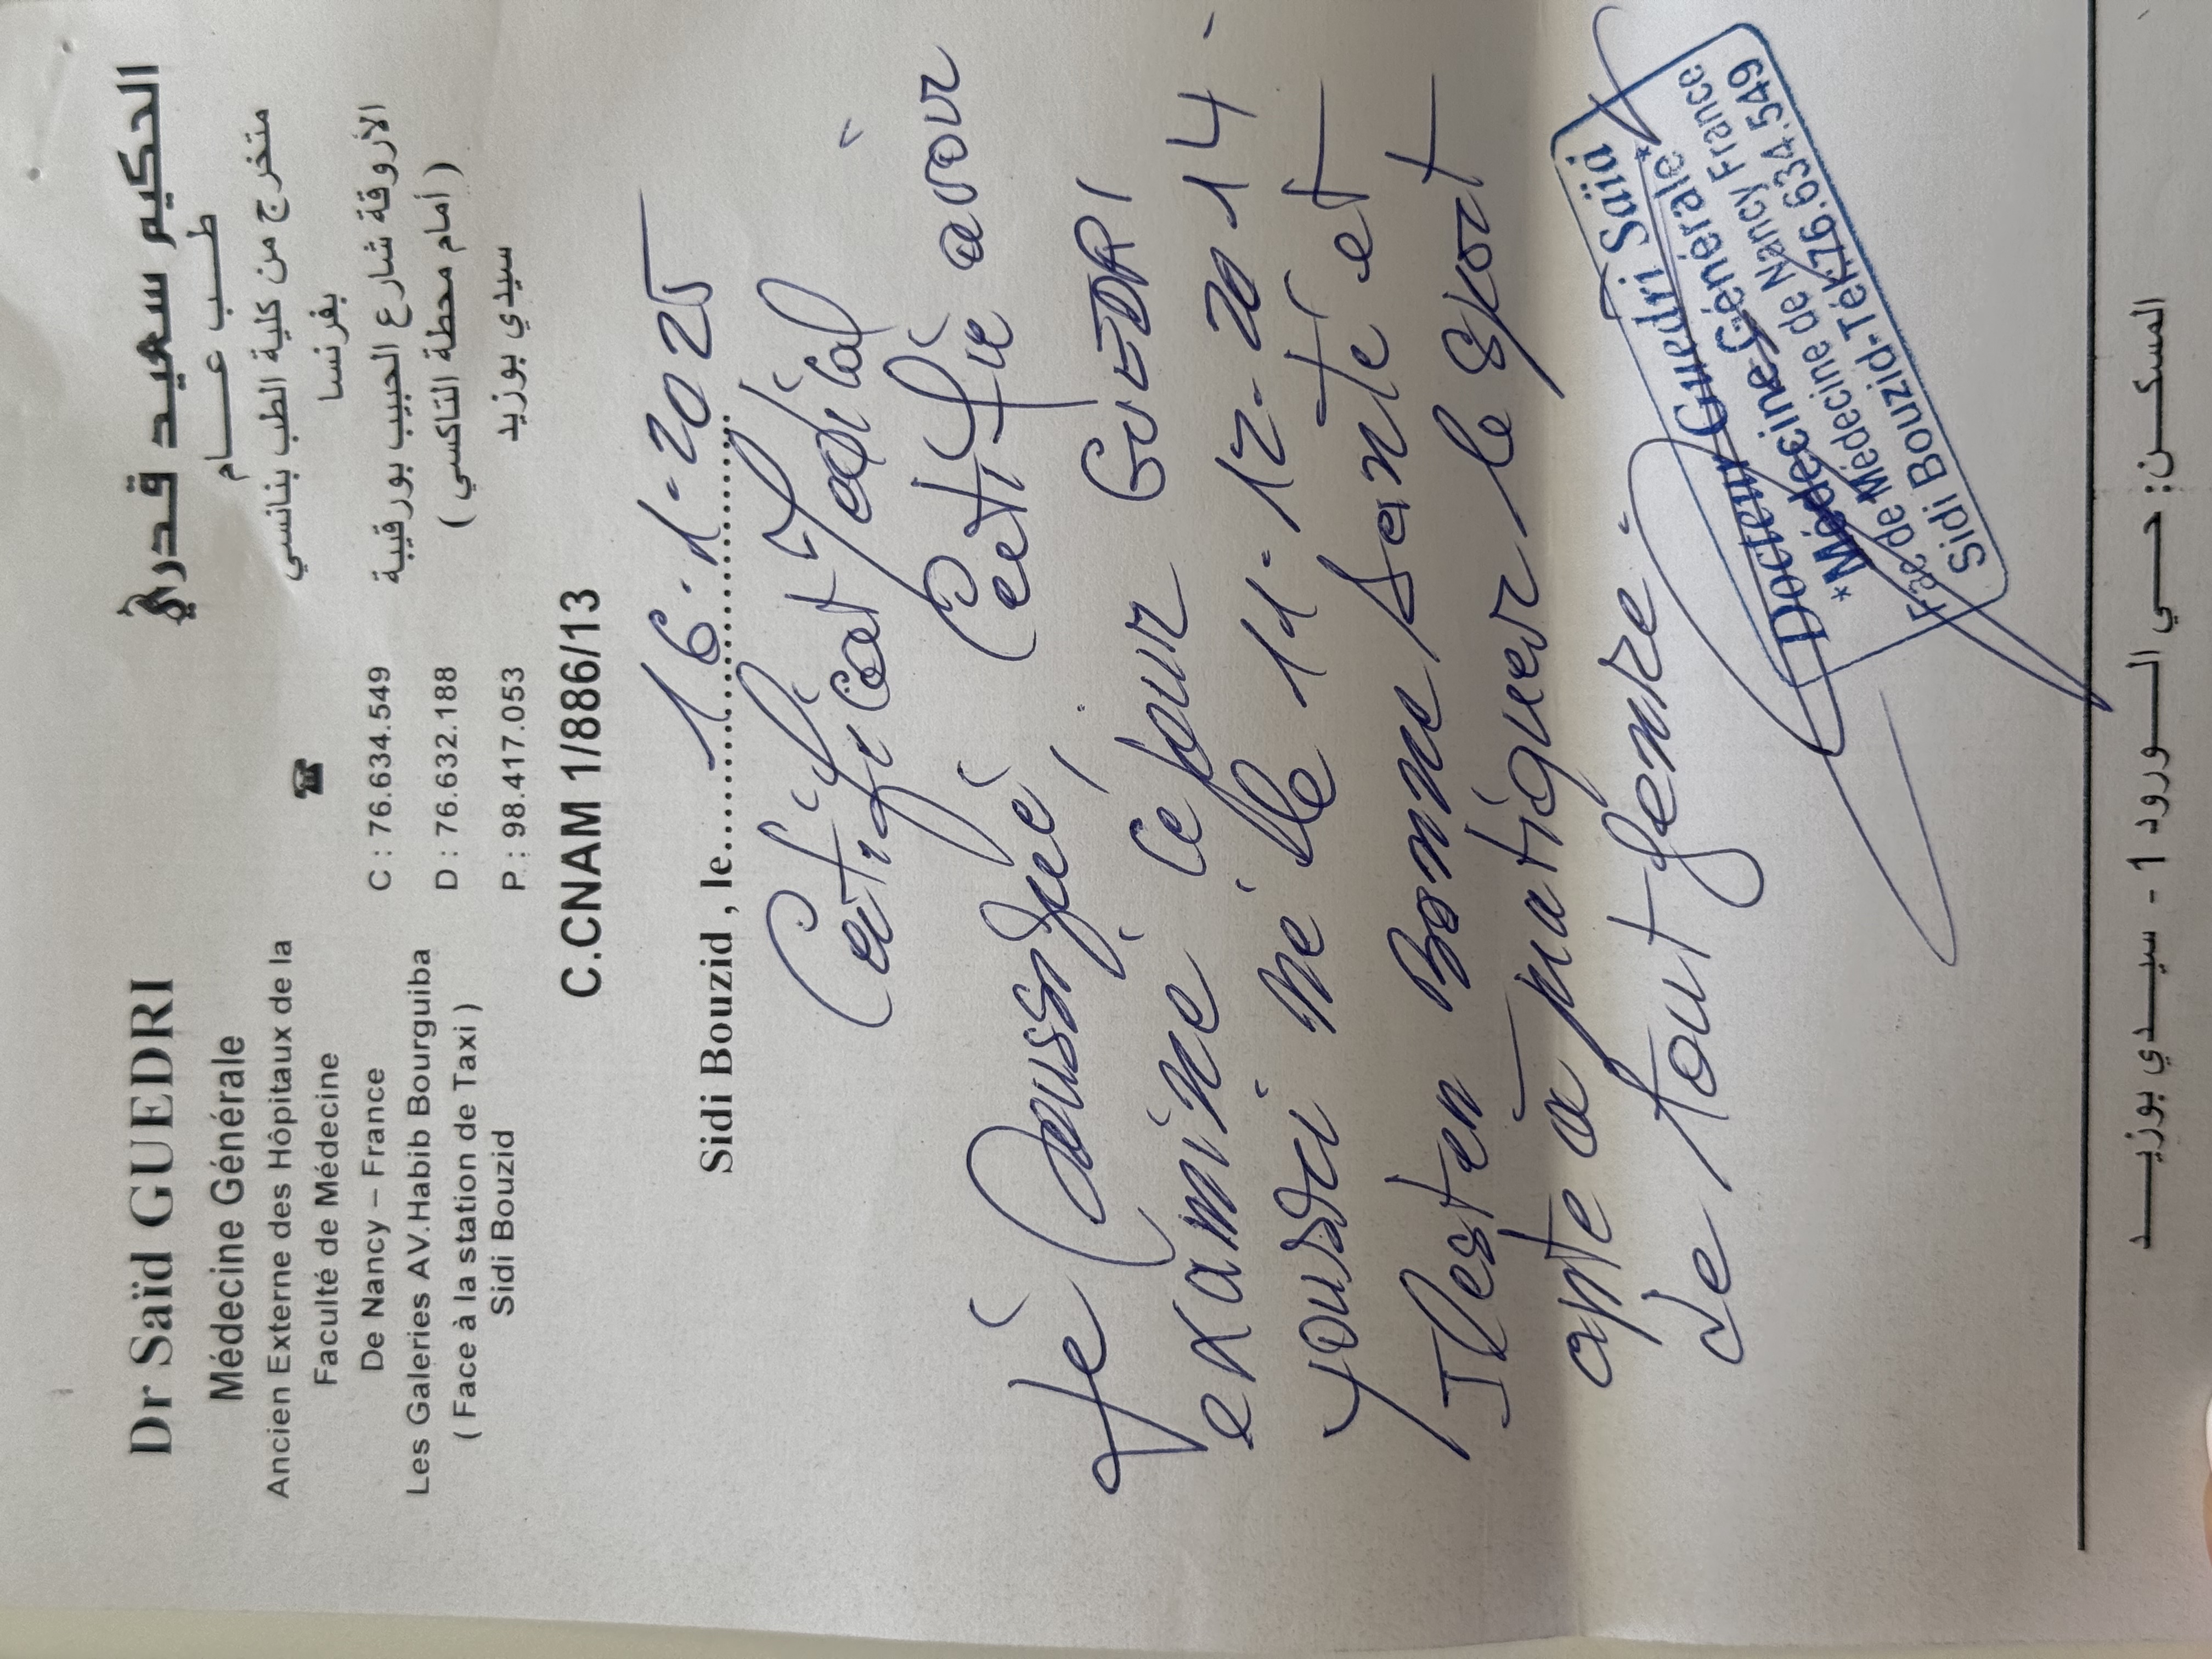 Dr Saïd GUEDRI
Médecine Générale
Ancien Externe des Hôpitaux de la
Faculté de Médecine
De Nancy – France
Les Galeries AV.Habib Bourguiba
( Face à la station de Taxi )
Sidi Bouzid
☎
C : 76.634.549
D : 76.632.188
P : 98.417.053
الحكيم سعيد قدري
طب عام
متخرج من كلية الطب بنانسي
بفرنسا
الأروقة شارع الحبيب بورقيبة
( أمام محطة التاكسي )
سيدي بوزيد
C.CNAM 1/886/13
Sidi Bouzid , le 16-1-2025
Certificat Médical
Je Soussigné, Certifie avoir
examiné ce jour GUEDRI
né le 11-12-2014-
Il est en Bonne Santé et
apte à pratiquer le sport
de tout genre.
Docteur Guedri Saïd
*Médecine Générale*
Fac de Médecine de Nancy France
Sidi Bouzid-Tél:76.634.549
المسكن: حي الورود 1 - سيدي بوزيد